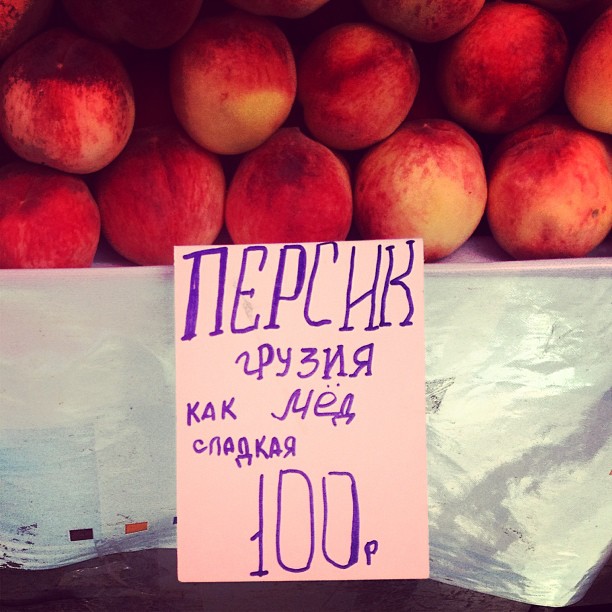 ПЕРСИК
ГРУЗИЯ
КАК МЁД
СЛАДКАЯ
100р